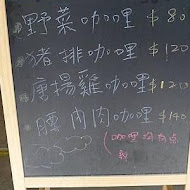 野菜咖哩 $80
豬排咖哩 $120
唐揚雞咖哩 $120
腰內肉咖哩 $140
(咖哩均有点